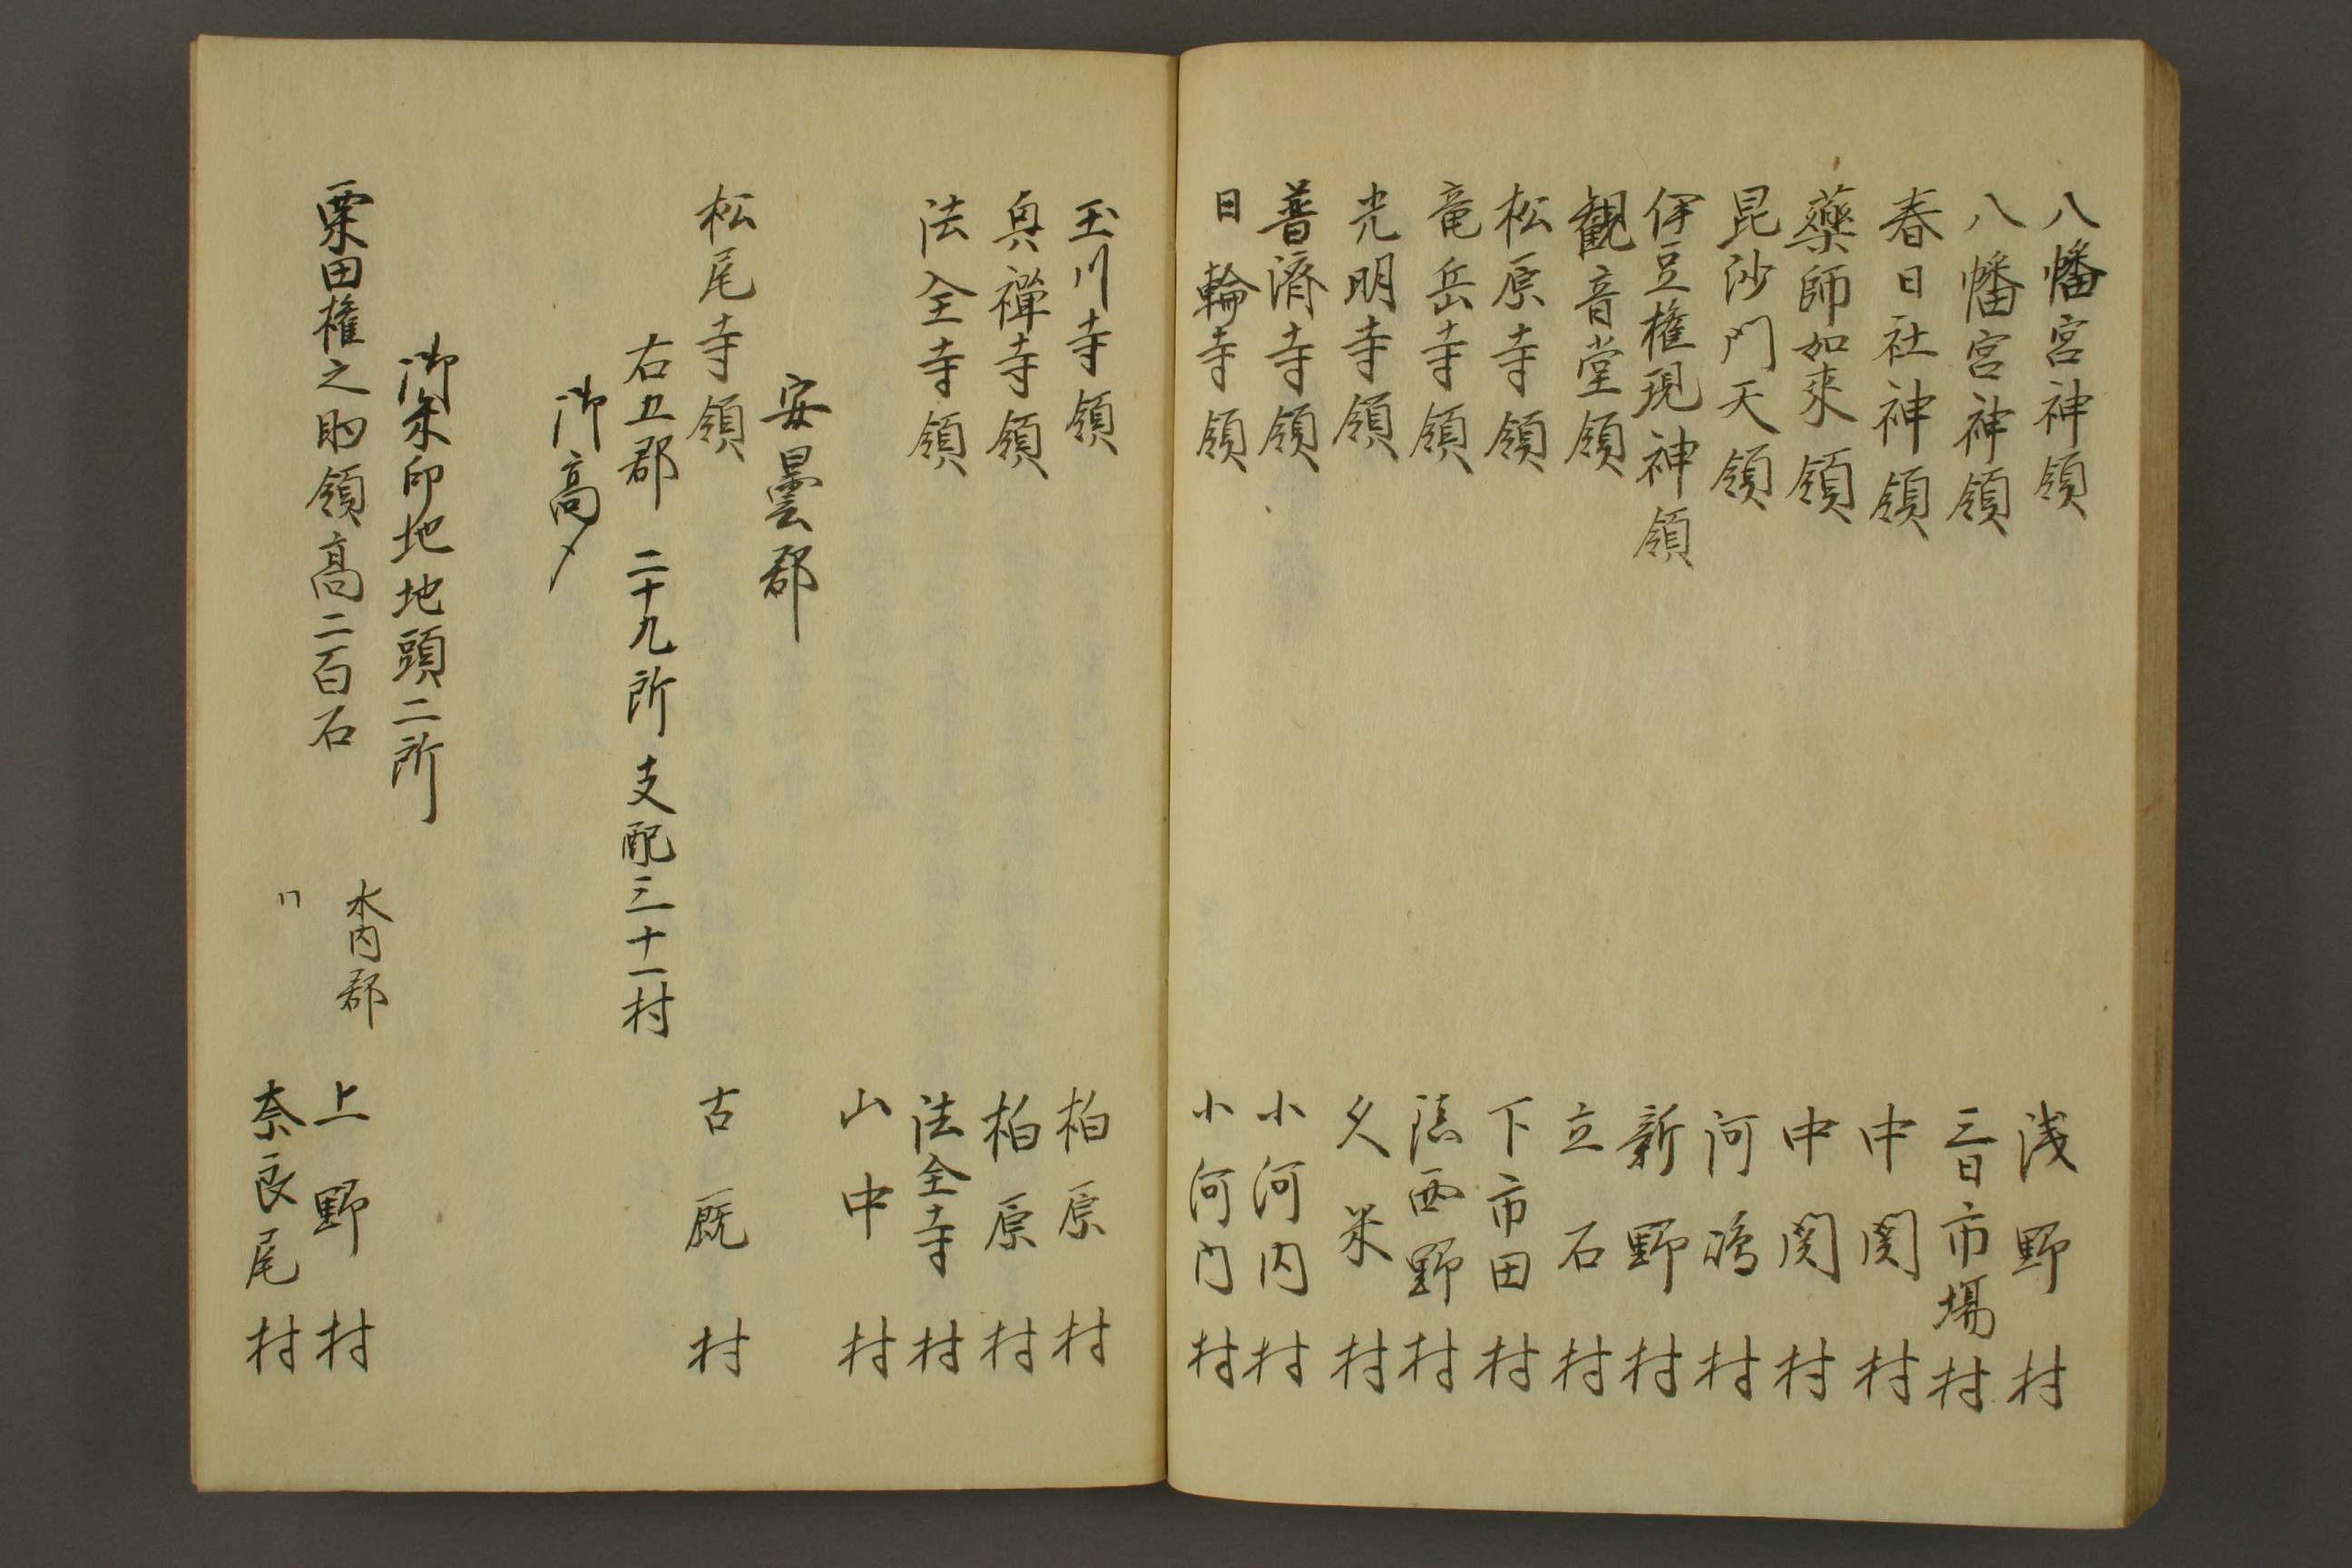 八幡宮神領 浅野村
八幡宮神領 三日市場村
春日社神領 中関村
藥師如来領 中関村
昆沙門天領 河嶋村
伊豆権現神領 新野村
観音堂領 立石村
松原寺領 下市田村
竜岳寺領 西野村
光明寺領 久米村
普濟寺領 小河内村
日輪寺領 小河内村
玉川寺領 柏原村
真禅寺領 柏原村
法全寺領 法全寺村
山中村
安曇郡
松尾寺領 古厩村
右五郡 二十九所 支配三十一村
御高〆
御朱印地地頭二所
水内郡
栗田権之助領高二百石 上野村
〃 奈良尾村